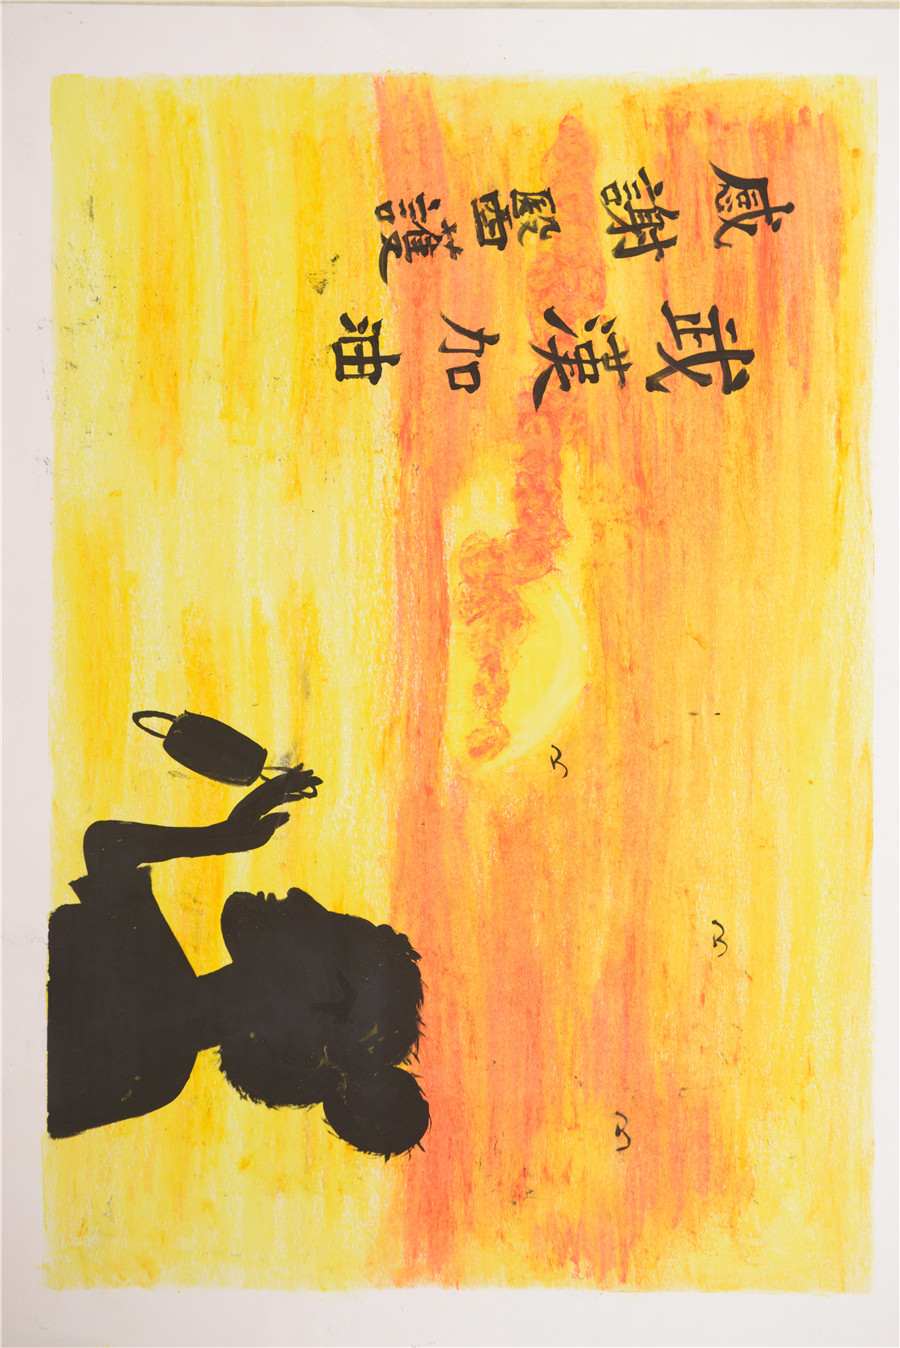 武漢加油
感謝醫護